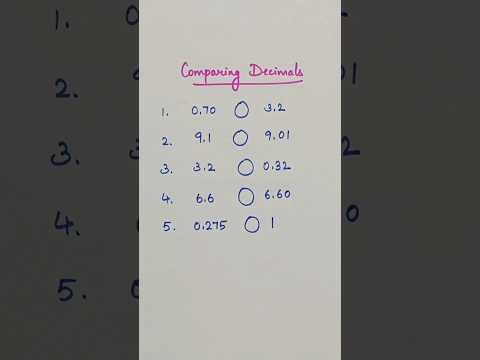 Comparing Decimals
1. 0.70 ○ 3.2
2. 9.1 ○ 9.01
3. 3.2 ○ 0.32
4. 6.6 ○ 6.60
5. 0.275 ○ 1